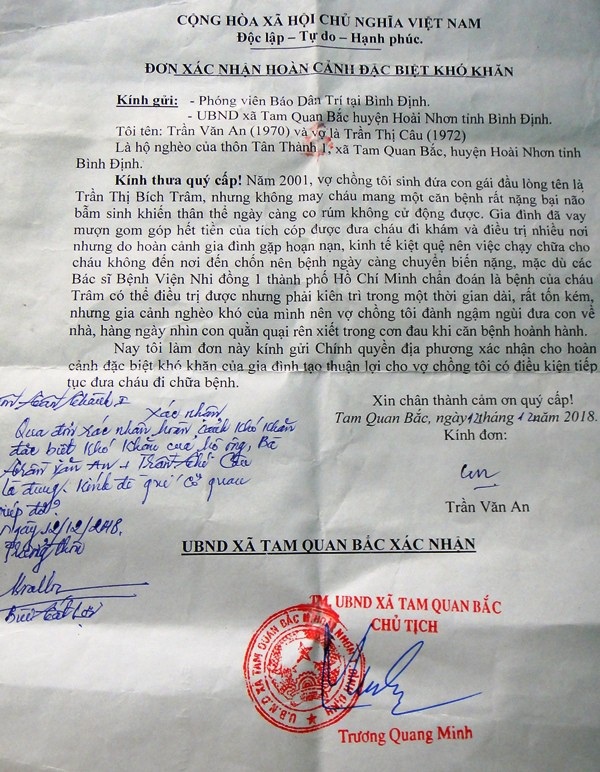 CỘNG HÒA XÃ HỘI CHỦ NGHĨA VIỆT NAM
Độc lập – Tự do – Hạnh phúc.
ĐƠN XÁC NHẬN HOÀN CẢNH ĐẶC BIỆT KHÓ KHĂN
Kính gửi: - Phóng viên Báo Dân Trí tại Bình Định.
- UBND xã Tam Quan Bắc huyện Hoài Nhơn tỉnh Bình Định.
Tôi tên: Trần Văn An (1970) và vợ là Trần Thị Câu (1972)
Là hộ nghèo của thôn Tân Thành 1, xã Tam Quan Bắc, huyện Hoài Nhơn tỉnh
Bình Định.
Kính thưa quý cấp! Năm 2001, vợ chồng tôi sinh đứa con gái đầu lòng tên là
Trần Thị Bích Trâm, nhưng không may cháu mang một căn bệnh rất nặng bại não
bẩm sinh khiến thân thể ngày càng co rúm không cử động được. Gia đình đã vay
mượn gom góp hết tiền của tích cóp được đưa cháu đi khám và điều trị nhiều nơi
nhưng do hoàn cảnh gia đình gặp hoạn nạn, kinh tế kiệt quệ nên việc chạy chữa cho
cháu không đến nơi đến chốn nên bệnh ngày càng chuyển biến nặng, mặc dù các
Bác sĩ Bệnh Viện Nhi đồng 1 thành phố Hồ Chí Minh chẩn đoán là bệnh của cháu
Trâm có thể điều trị được nhưng phải kiên trì trong một thời gian dài, rất tốn kém,
nhưng gia cảnh nghèo khó của mình nên vợ chồng tôi đành ngậm ngùi đưa con về
nhà, hàng ngày nhìn con quằn quại rên xiết trong cơn đau khi căn bệnh hoành hành.
Nay tôi làm đơn này kính gửi Chính quyền địa phương xác nhận cho hoàn
cảnh đặc biệt khó khăn của gia đình tạo thuận lợi cho vợ chồng tôi có điều kiện tiếp
tục đưa cháu đi chữa bệnh.
Xin chân thành cảm ơn quý cấp!
Tam Quan Bắc, ngày 12 tháng 12 năm 2018.
Kính đơn:
An
Trần Văn An
Xác nhận
Qua đơn xác nhận hoàn cảnh khó khăn
đặc biệt khó khăn của hộ ông, Bà
Trần Văn An + Trần Thị Câu
là đúng. Kính đề quí cơ quan
giúp đỡ?
Ngày 12/12/2018,
Trưởng thôn
UBND XÃ TAM QUAN BẮC XÁC NHẬN
TM. UBND XÃ TAM QUAN BẮC
CHỦ TỊCH
U.B.N.D XÃ TAM QUAN BẮC H.HOÀI NHƠN BÌNH ĐỊNH
Trương Quang Minh